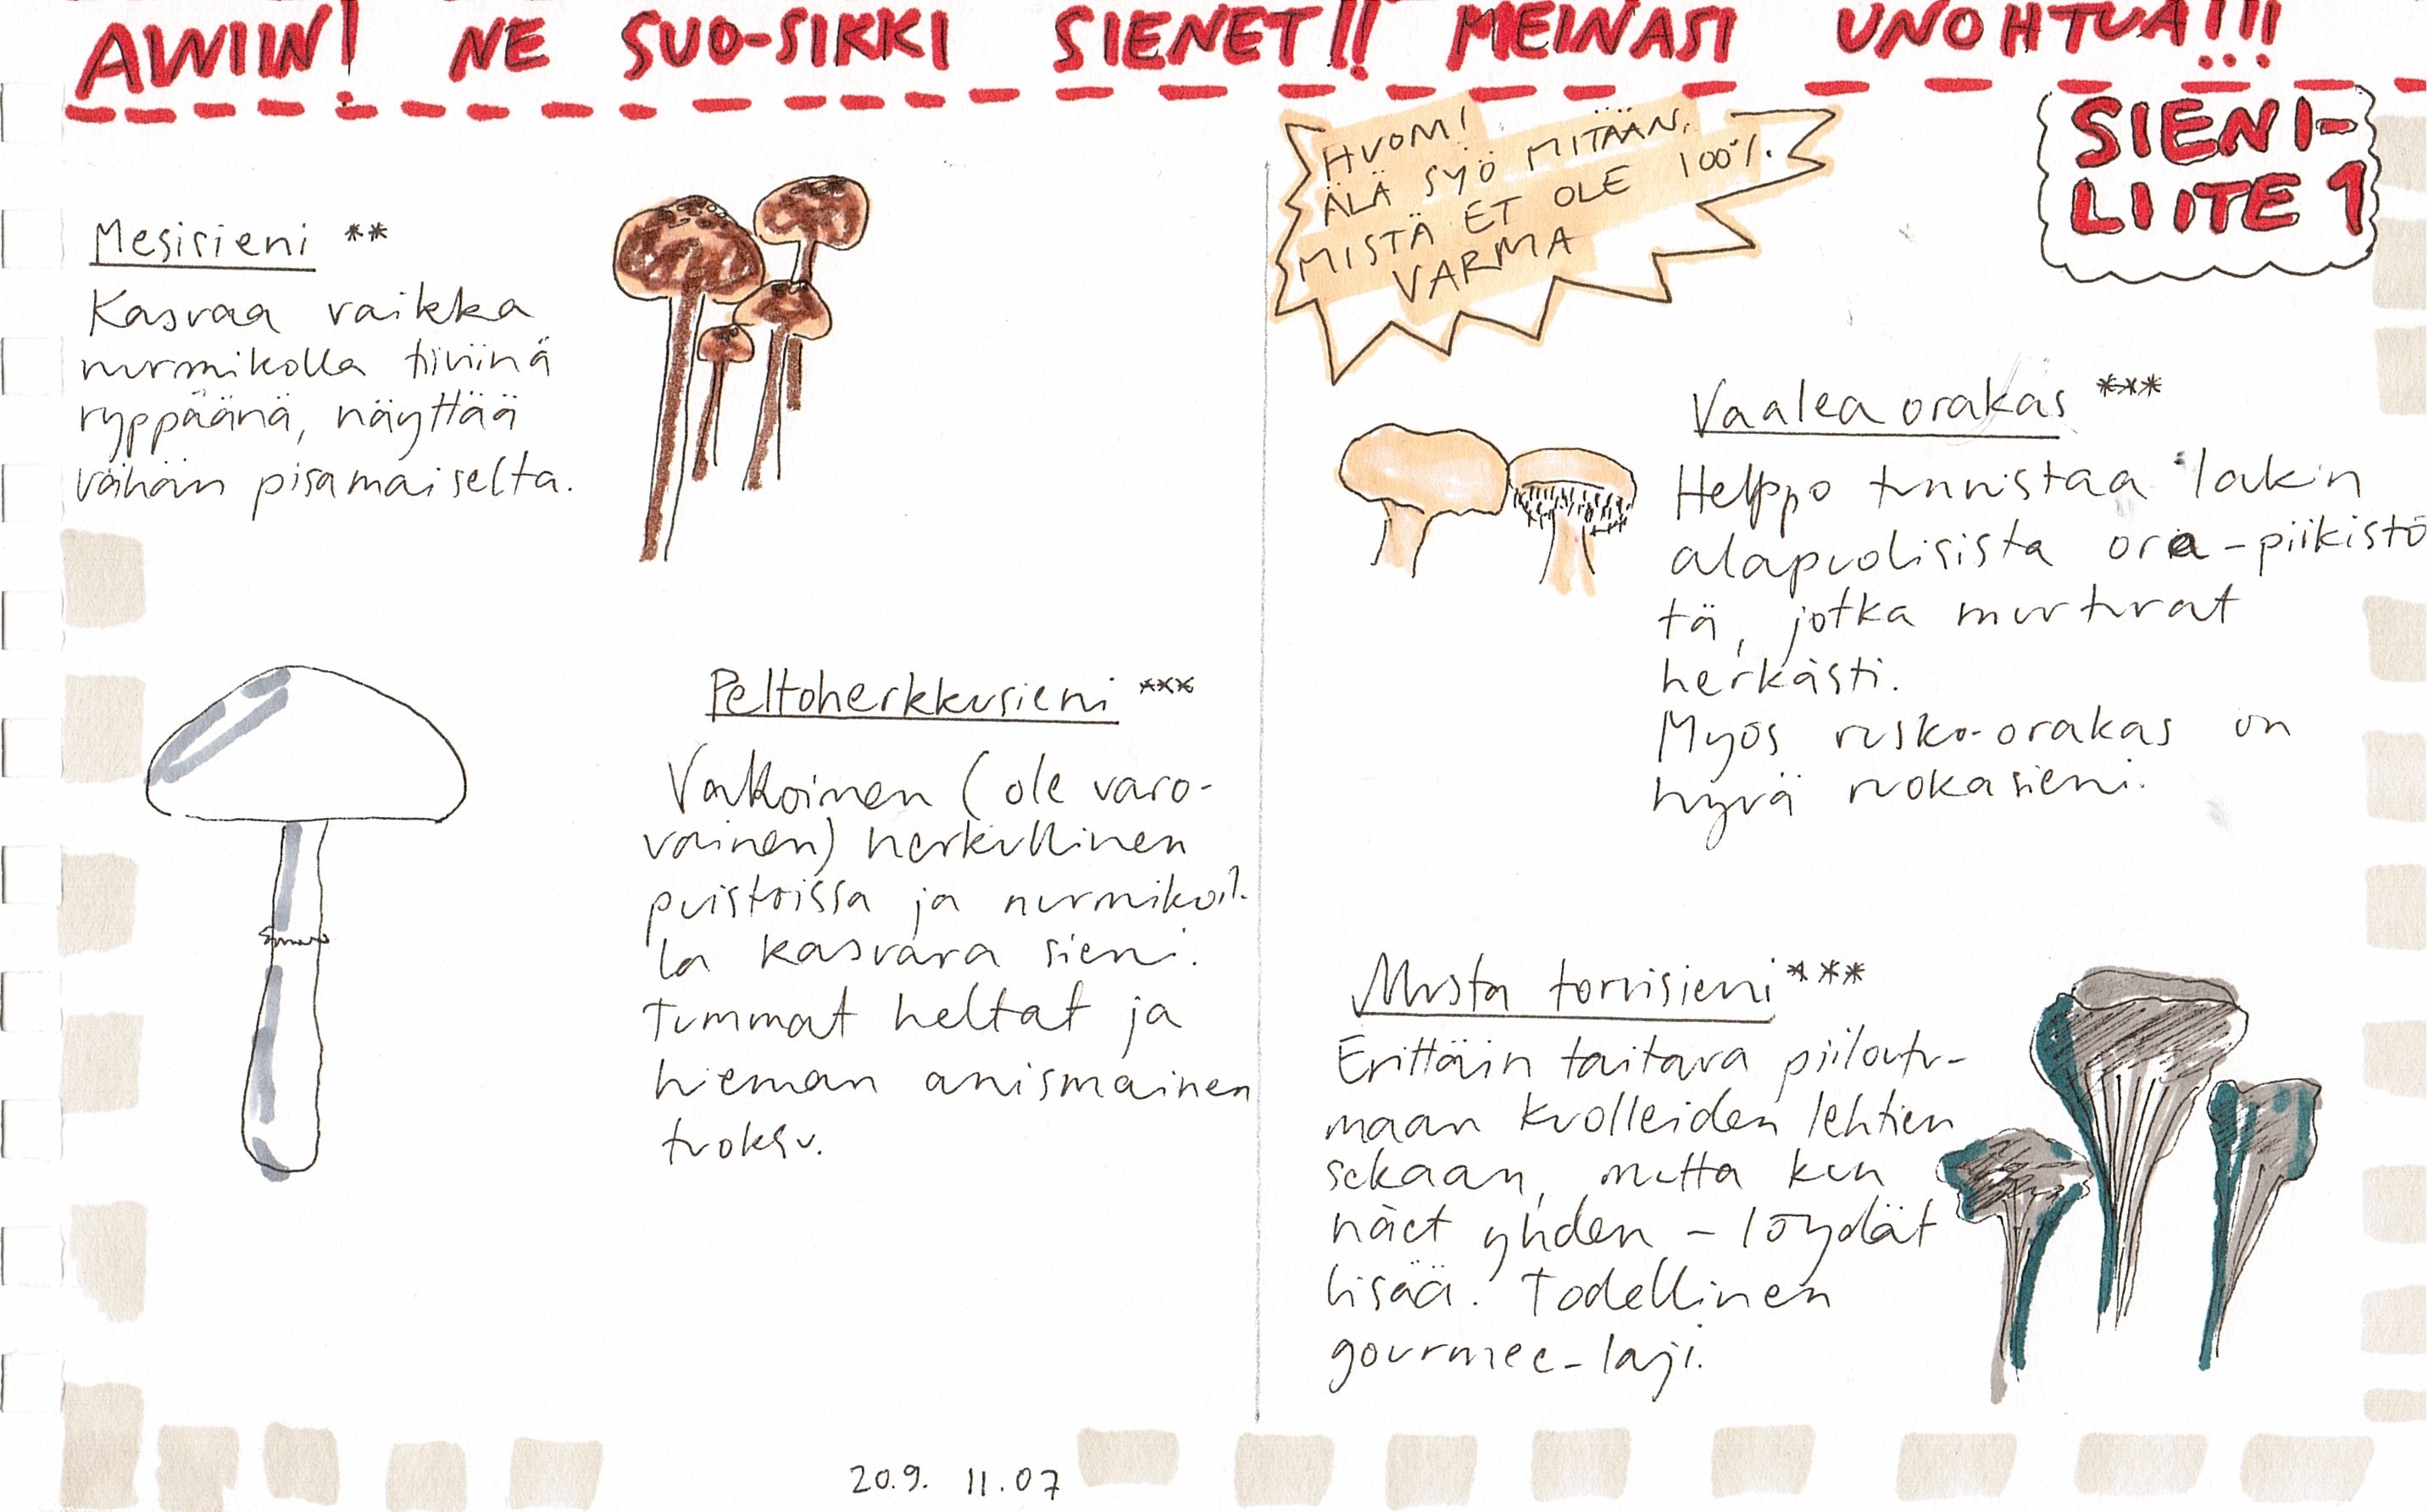 AWIIN! NE SUO-SIKKI SIENET!! MEINASI UNOHTUA!!!
SIENI-
LIITE 1
HUOM!
ÄLÄ SYÖ MITÄÄN,
MISTÄ ET OLE 100%
VARMA
Mesisieni **
Kasvaa vaikka
nurmikolla tiiviinä
ryppäänä, näyttää
vähän pisamaiselta.
Peltoherkkusieni ***
Valkoinen (ole varo-
vainen) herkullinen
puistoissa ja nurmikoil-
la kasvava sieni.
Tummat heltat ja
hieman anismainen
tuoksu.
Vaalea orakas ***
Helppo tunnistaa lakin
alapuolisista ora-piikistö
tä, jotka murtuvat
herkästi.
Myös rusko-orakas on
hyvä ruokasieni.
Musta torvisieni ***
Erittäin taitava piiloutu-
maan kuolleiden lehtien
sekaan, mutta kun
näet yhden - löydät
lisää. Todellinen
gourmee-laji.
20.9. 11.07